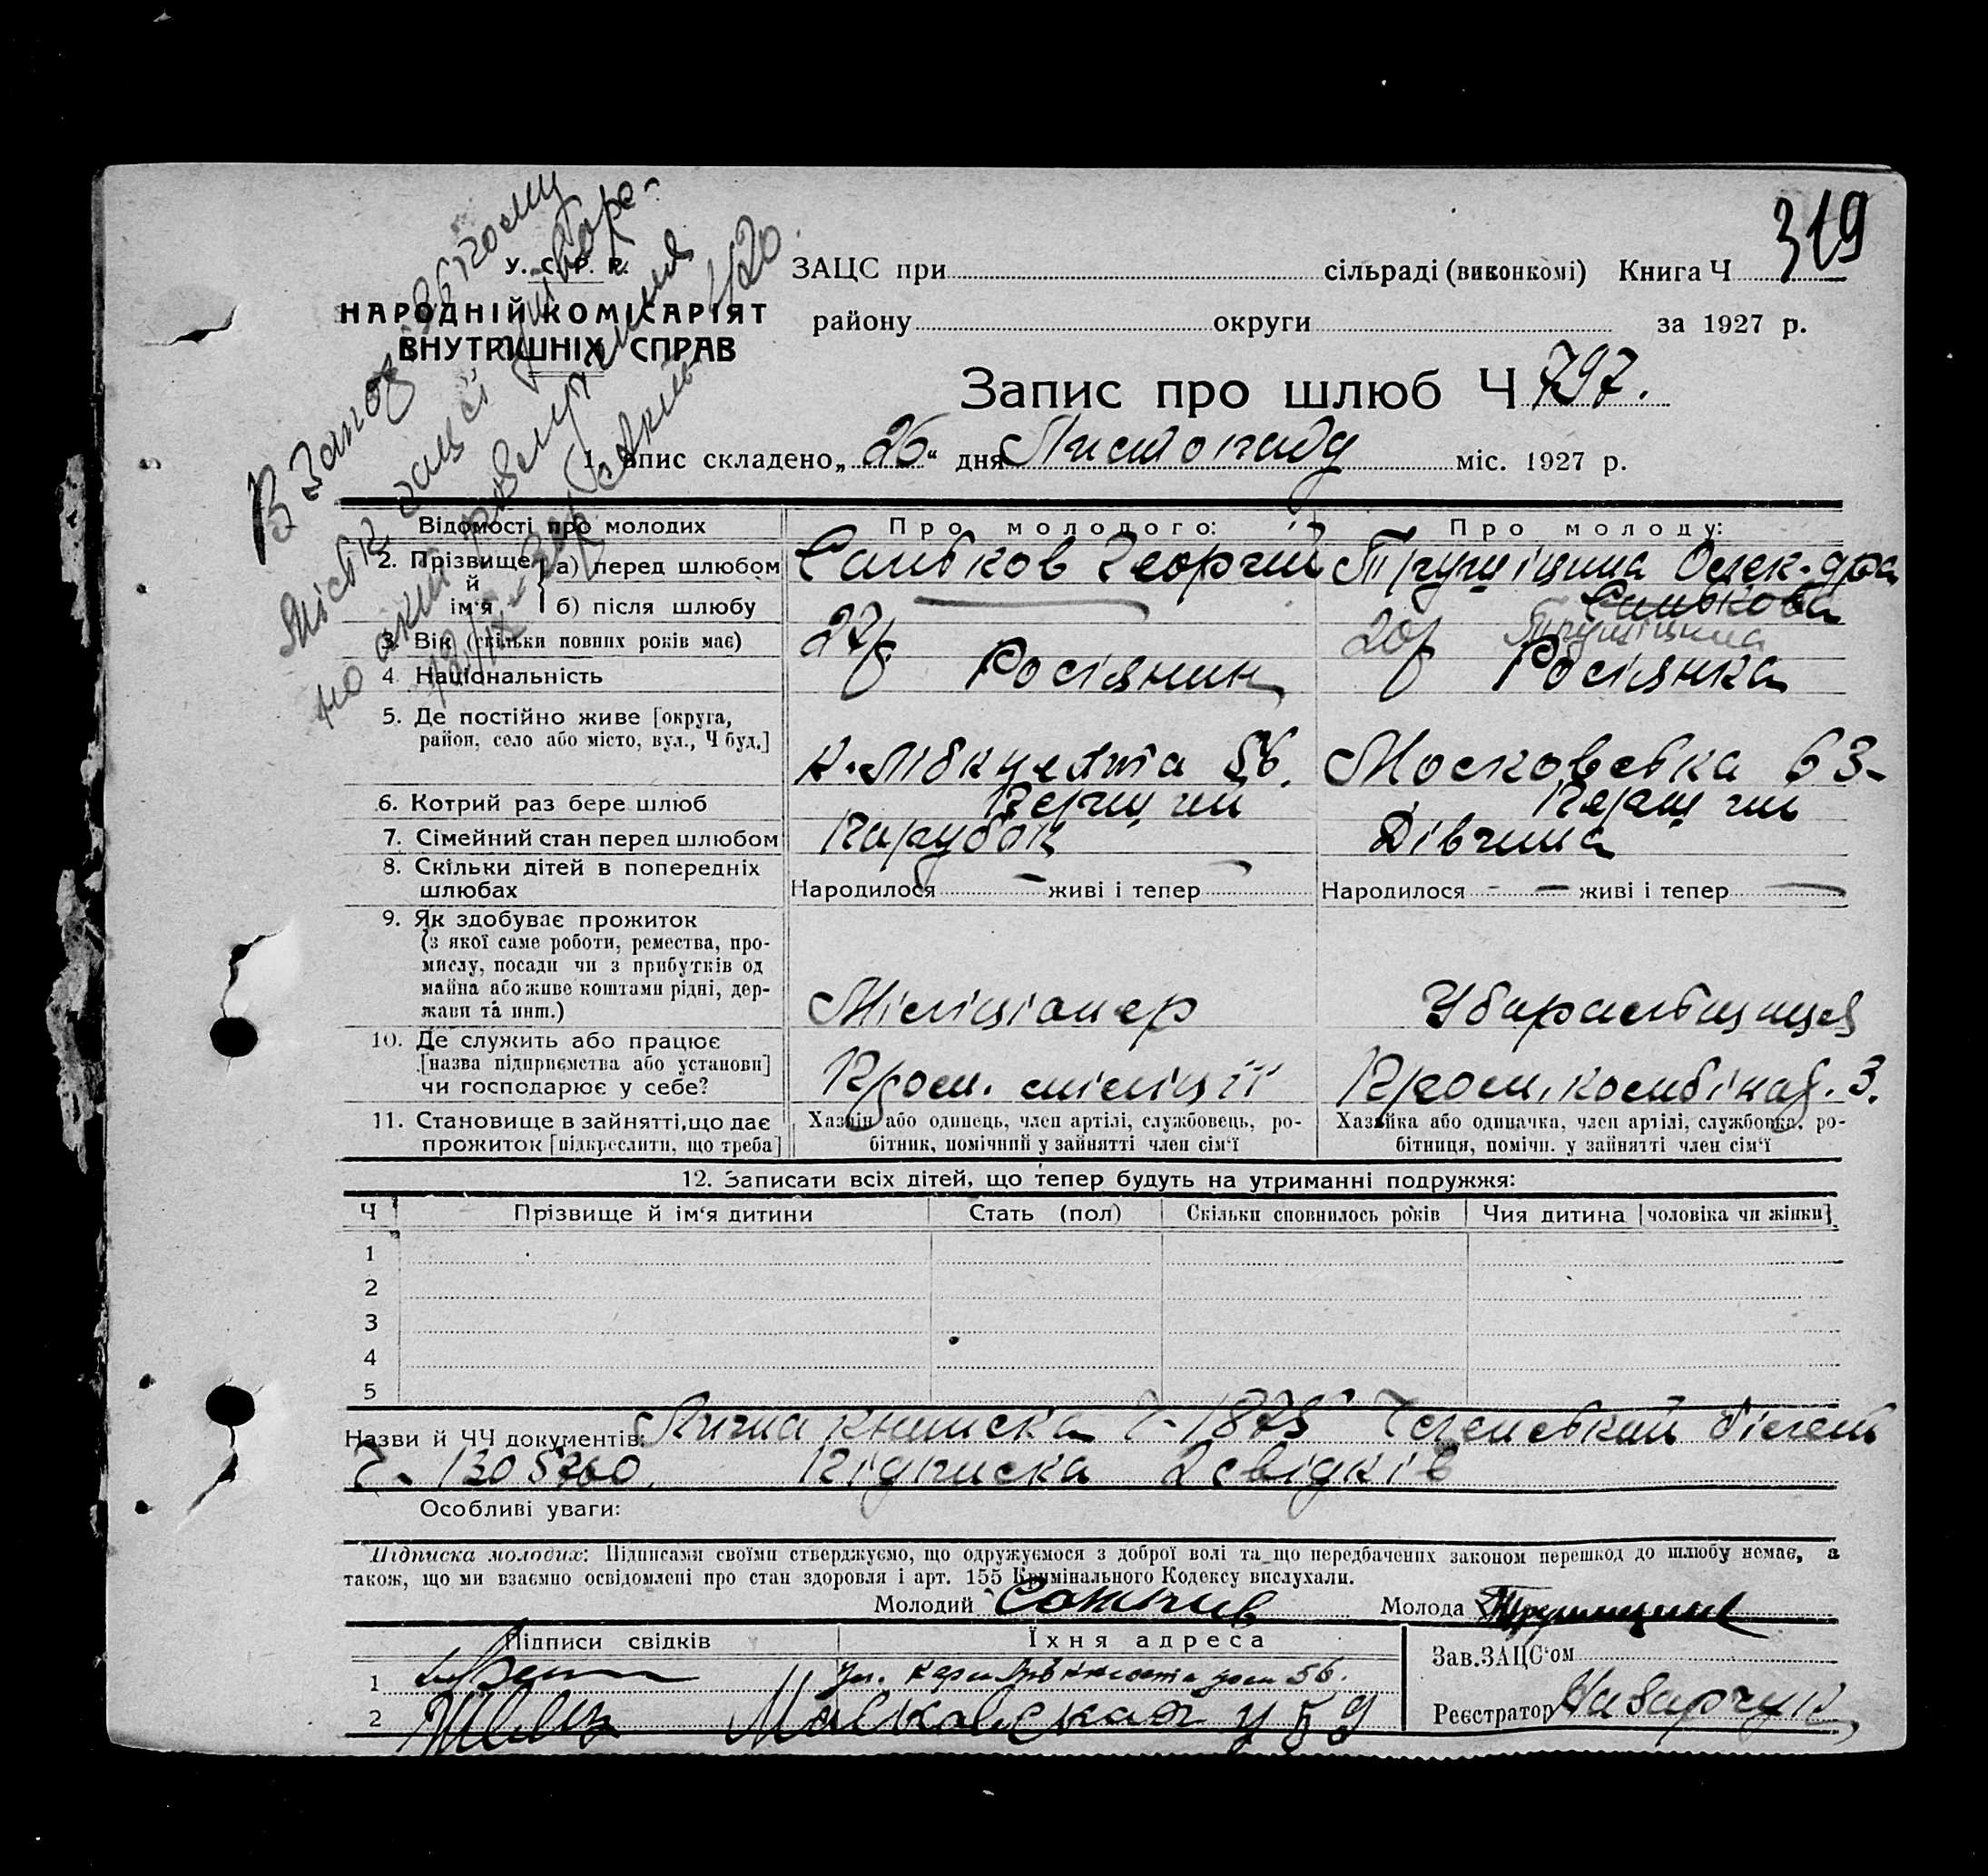 319
У. С. Р. Р.
НАРОДНІЙ КОМІСАРІЯТ
ВНУТРІШНІХ СПРАВ
ЗАЦС при сільраді (виконкомі) Книга Ч
району округи за 1927 р.
Запис про шлюб Ч 797.
1. Запис складено „26“ дня Листопаду міс. 1927 р.
Відомості про молодих
Про молодого:
Про молоду:
2. Прізвище й ім'я
а) перед шлюбом
Георгій
Олек-дра
б) після шлюбу
3. Вік (скільки повних років має)
27р
20р
4. Національність
Росіянин
Росіянка
5. Де постійно живе [округа,
район, село або місто, вул., Ч буд.]
К. Лібкнехта 56.
Московська 63-
6. Котрий раз бере шлюб
Перший
Перший
7. Сімейний стан перед шлюбом
Парубок
Дівчина
8. Скільки дітей в попередніх
шлюбах
Народилося — живі і тепер —
Народилося — живі і тепер —
9. Як здобуває прожиток
(з якої саме роботи, ремества, про-
мислу, посади чи з прибутків од
майна або живе коштами рідні, дер-
жави та инш.)
Міліціонер
Убиральщиця
10. Де служить або працює
[назва підприємства або установи]
чи господарює у себе?
Пром. міліції
Пром. комбінат. 3.
11. Становище в зайнятті, що дає
прожиток [підкреслити, що треба]
Хазяїн або одинець, член артілі, службовець, ро-
бітник, помічний у зайнятті член сім'ї
Хазяйка або одиначка, член артілі, службовка, ро-
бітниця, помічн. у зайнятті член сім'ї
12. Записати всіх дітей, що тепер будуть на утриманні подружжя:
Ч Прізвище й ім'я дитини Стать (пол) Скільки сповнилось років Чия дитина [чоловіка чи жінки]
1
2
3
4
5
Назви й ЧЧ документів: Лична книжка Ч-1875 Членський білет
Ч. 1305760. Підписка 2 свідків
Особливі уваги:
Підписка молодих: Підписами своїми стверджуємо, що одружуємося з доброї волі та що передбачених законом перешкод до шлюбу немає, а
також, що ми взаємно освідомлені про стан здоровля і арт. 155 Кримінального Кодексу вислухали.
Молодий
Молода
Підписи свідків
Їхня адреса
Зав. ЗАЦС'ом
1
ул. Карла Либкнехта дом 56.
2
Московская 59
Реєстратор Назарчук